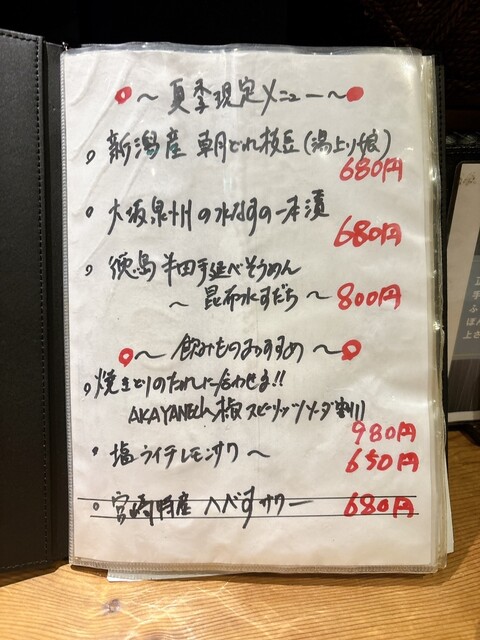 ～ 夏季現定メニュー ～
新潟産 朝どれ枝豆(湯上り娘)
680円
大坂泉州の水なすの一本漬
680円
徳島 半田手延べそうめん
～ 昆布水すだち ～ 800円
～ 飲みものおすすめ ～
焼きとりのたれに合わせる!!
AKAYANE山椒スピーリッツソーダ割り
980円
塩ライチレモンサワ～
650円
宮崎特産 へべすサワー 680円